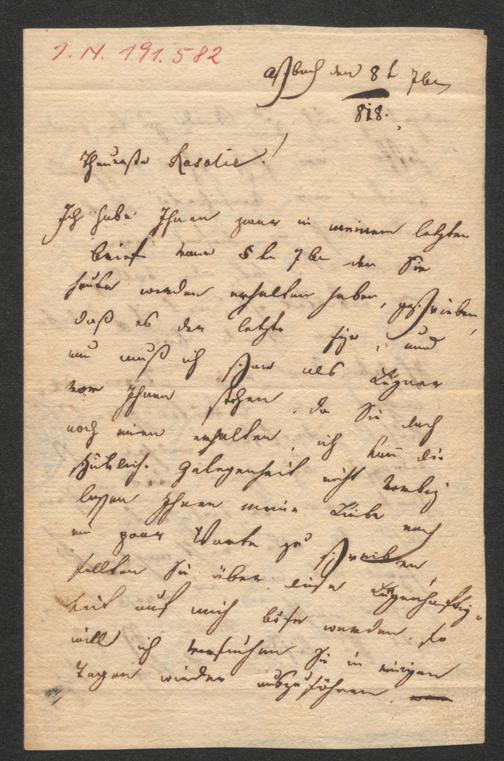 I. N. 191.582
Aßbach den 8t 7ber
818.
Theuerste Rosalie!
Ich habe Ihnen zwar in meinem letzten
Brief vom 5tn 7ber den Sie
heute werden erhalten haben, geschrieben,
daß es der letzte sey, und
nun muß ich schon als Lügner
vor Ihnen stehen, da Sie doch
noch einen erhalten, ich kann die
Gelegenheit nicht vorbey
lassen Ihnen meine Liebe noch
ein paar Worte zu schreiben,
sollten Sie über diese Lügenhaftig-
keit auf mich böse werden, so
will ich versuchen Sie in einigen
Tagen wieder auszusöhnen